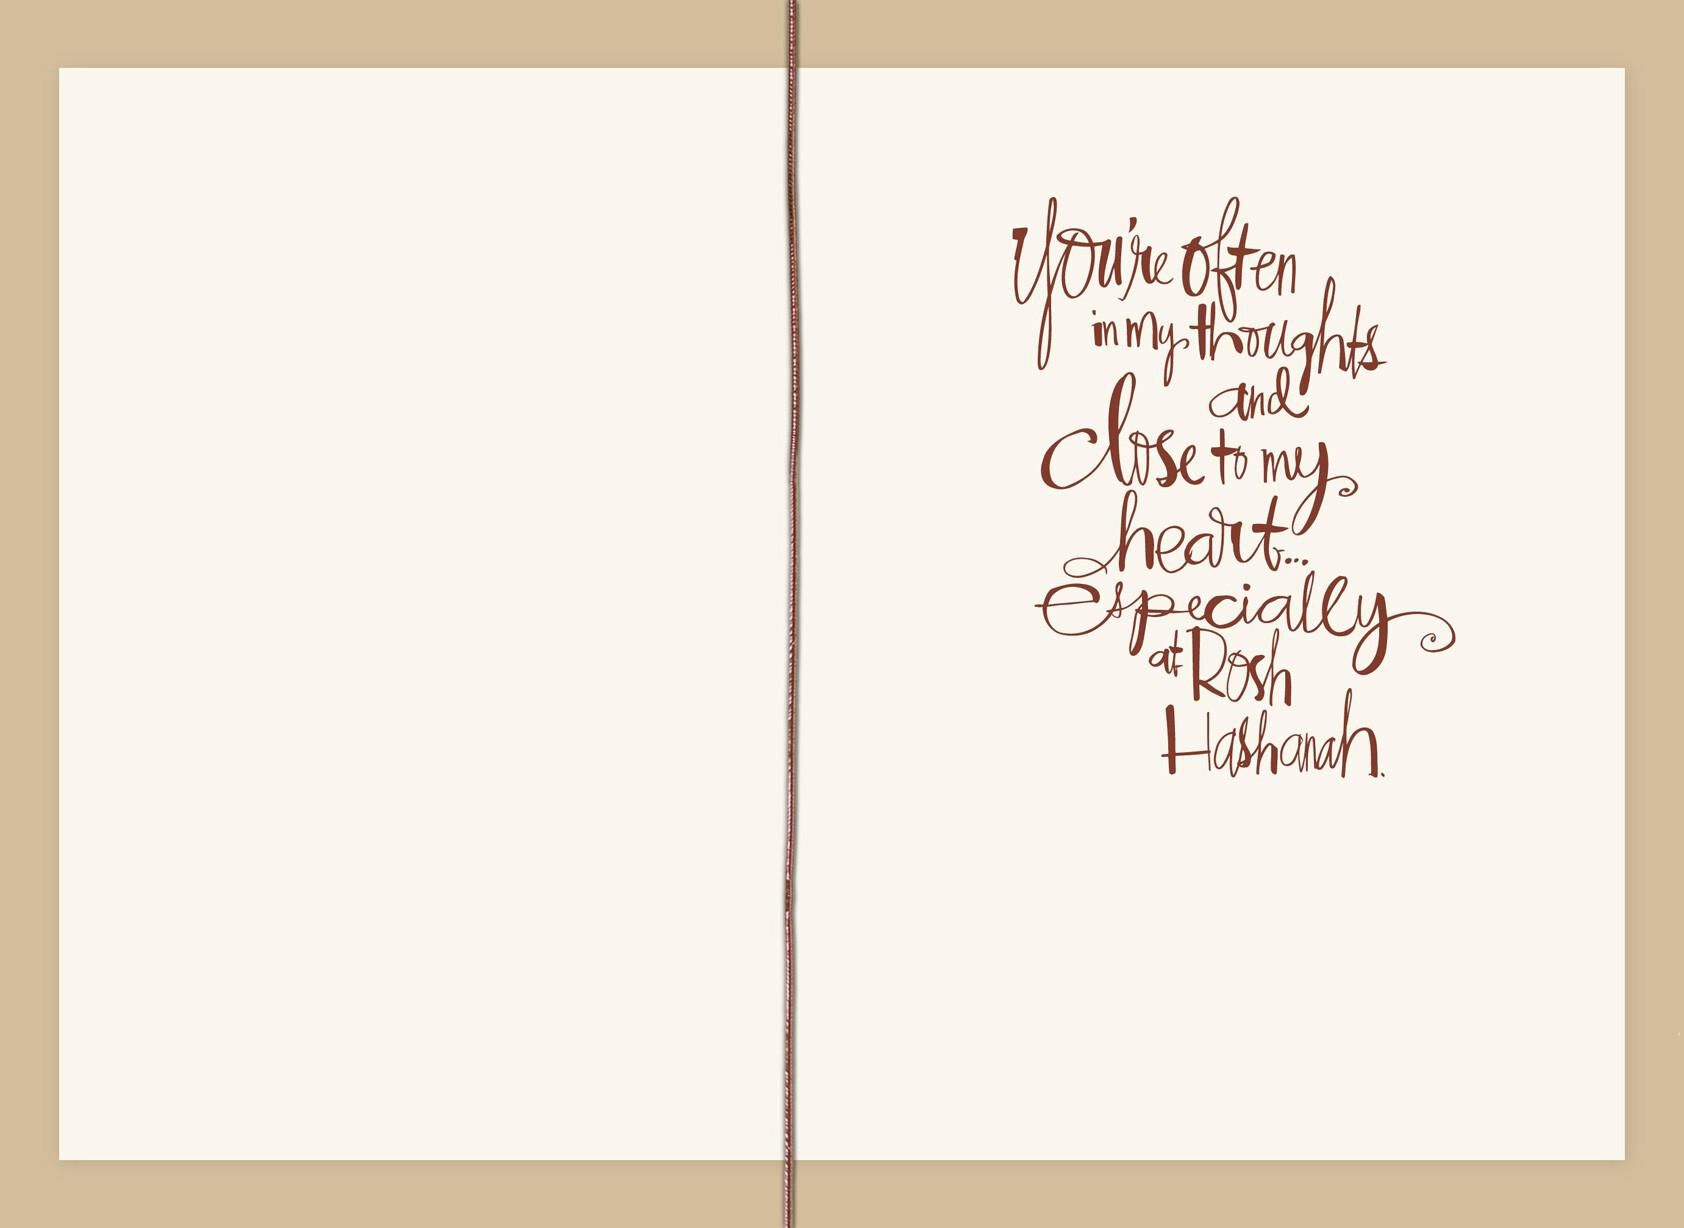 You're often
in my thoughts
and
close to my
heart...
especially
at Rosh
Hashanah.